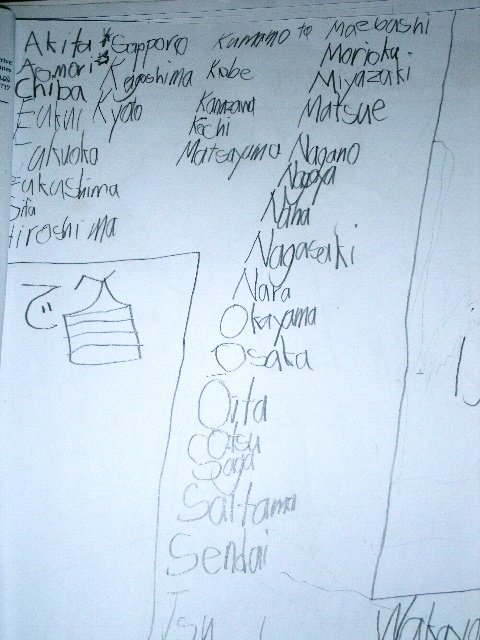 Akita *Sapporo
Aomori* Kagoshima
Chiba
Fukui Kyoto
Fukuoka
Fukushima
Gifu
Hiroshima
Kumamoto
Kobe
Kanazawa
Kochi
Matsuyama
Maebashi
Morioka
Miyazaki
Matsue
Nagano
Nagoya
Naha
Nagasaki
Nara
Okayama
Osaka
Oita
Otsu
Saga
Saitama
Sendai
Tsu